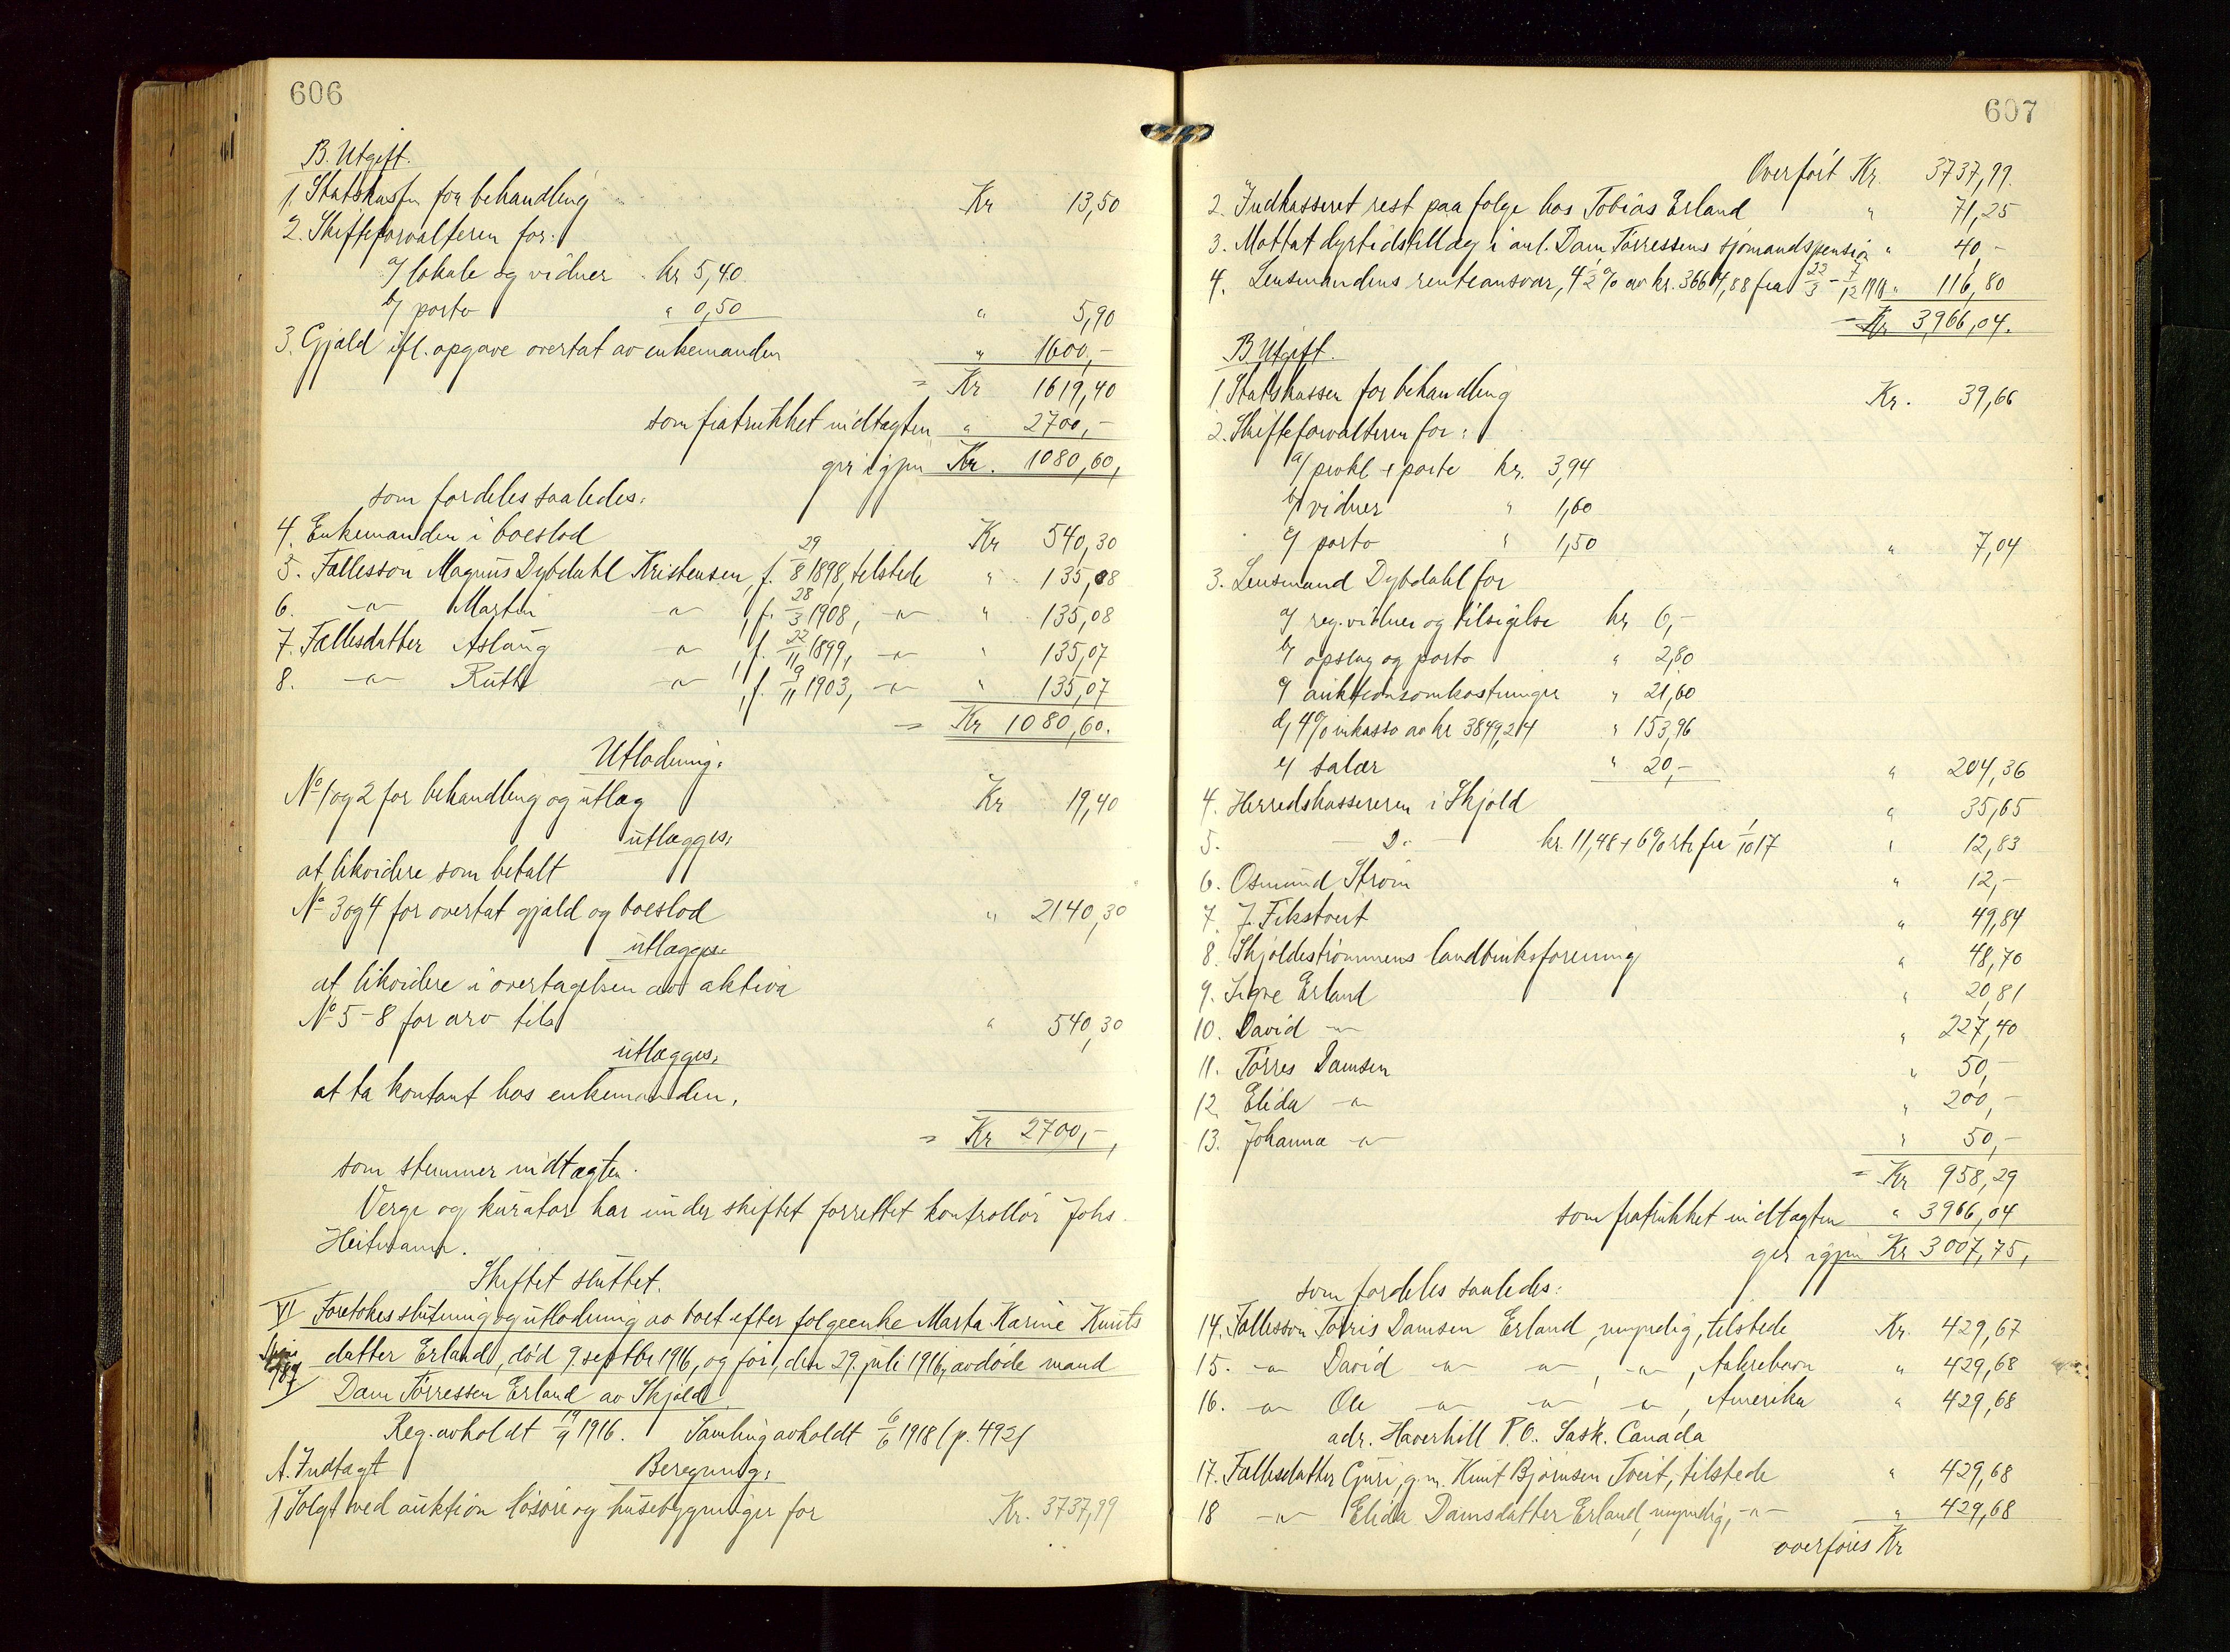 606
B. Utgift.
1. Statskassen for behandling " Kr 13,50
2. Skifteforvalteren for:
a/ lokale og vidner kr 5,40
b/ porto " 0,50 " 5,90
3. Gjæld ifl. opgave overtat av enkemanden " 1600,-
= Kr 1619,40
som fratrukket indtægten " 2700,-
gir igjen Kr. 1080,60,
som fordeles saaledes:
4. Enkemanden i boeslod Kr 540,30
5. Fællessøn Magnus Dybdahl Kristensen, f. 29/8 1898, tilstede " 135,08
6. -"- Martin -"- , f. 28/3 1908, -"- " 135,08
7. Fællesdatter Aslaug -"- , f. 22/11 1899, -"- " 135,07
8. -"- Ruth -"- , f. 9/11 1903, -"- " 135,07
= Kr 1080,60.
Utlodning:
No 1 og 2 for behandling og utlæg Kr 19,40
utlægges:
at likvidere som betalt
No 3 og 4 for overtat gjæld og boeslod " 2140,30
utlægges:
at likvidere i overtagelsen av aktiva
No 5-8 for arv tils. " 540,30
utlægges:
at ta kontant hos enkemanden.
= Kr 2700,-,
som stemmer indtægten.
Verge og kurator har under skiftet forrettet kontrollør Johs.
Heitmann.
Skiftet sluttet.
VI Foretokes slutning og utlodning av boet efter følgeenke Marta Karine Knuts
datter Erland, død 9. septbr 1916, og før, den 29. juli 1916, avdøde mand
Dam Tørressen Erland av Skjold.
Reg. avholdt 19/9 1916. Samling avholdt 6/6 1918 (p. 492)
A. Indtægt Beregning:
1 Solgt ved auktion løsøre og husebygninger for Kr. 3737,99
607
Overført Kr. 3737,99.
2. Indkasseret rest paa følge hos Tobias Erland " 71,25
3. Mottat dyrtidstillæg i anl. Dam Tørressens sjømandspension " 40,-
4. Lensmandens renteansvar, 4 1/2 % av kr. 3664,88 fra 22/3 - 7/12 1918 " 116,80
= Kr 3966,04.
B. Utgift.
1 Statskassen for behandling Kr. 39,66
2. Skifteforvalteren for:
a/ prokl + porto kr. 3,94
b/ vidner " 1,60
c/ porto " 1,50 " 7,04
3. Lensmand Dybdahl for
a/ reg. vidner og tilsigelse kr 6,-
b/ opslag og porto " 2,80
c/ auktionsomkostninger " 21,60
d/ 4% inkasso av kr 3849,24 " 153,96
e/ salær " 20,- " 204,36
4. Herredskassereren i Skjold " 35,65
5. - D. - kr. 11,48 + 6% rte fra 1/10 17 " 12,83
6. Osmund Strøm " 12,-
7. J. Fikstveit " 49,84
8. Skjoldestrømmens landbruksforening " 48,70
9. Signe Erland " 20,81
10. David -"- " 227,40
11. Tørres Damsen " 50,-
12. Elida -"- " 200,-
13. Johanna -"- " 50,-
= Kr 958,29
som fratrukket indtægten " 3966,04
gir igjen Kr 3007,75,
som fordeles saaledes:
14. Fællessøn Tørris Damsen Erland, myndig, tilstede Kr. 429,67
15. -"- David -"- -"- , -"- , Aakrehavn " 429,68
16. -"- Ole -"- -"- -"- , Amerika " 429,68
adr. Haverhill P.O. Sask. Canada
17. Fællesdatter Guri, g.m. Knut Bjørnsen Tveit, tilstede " 429,68
18 -"- Elida Damsdatter Erland, myndig, -"- " 429,68
overføres Kr